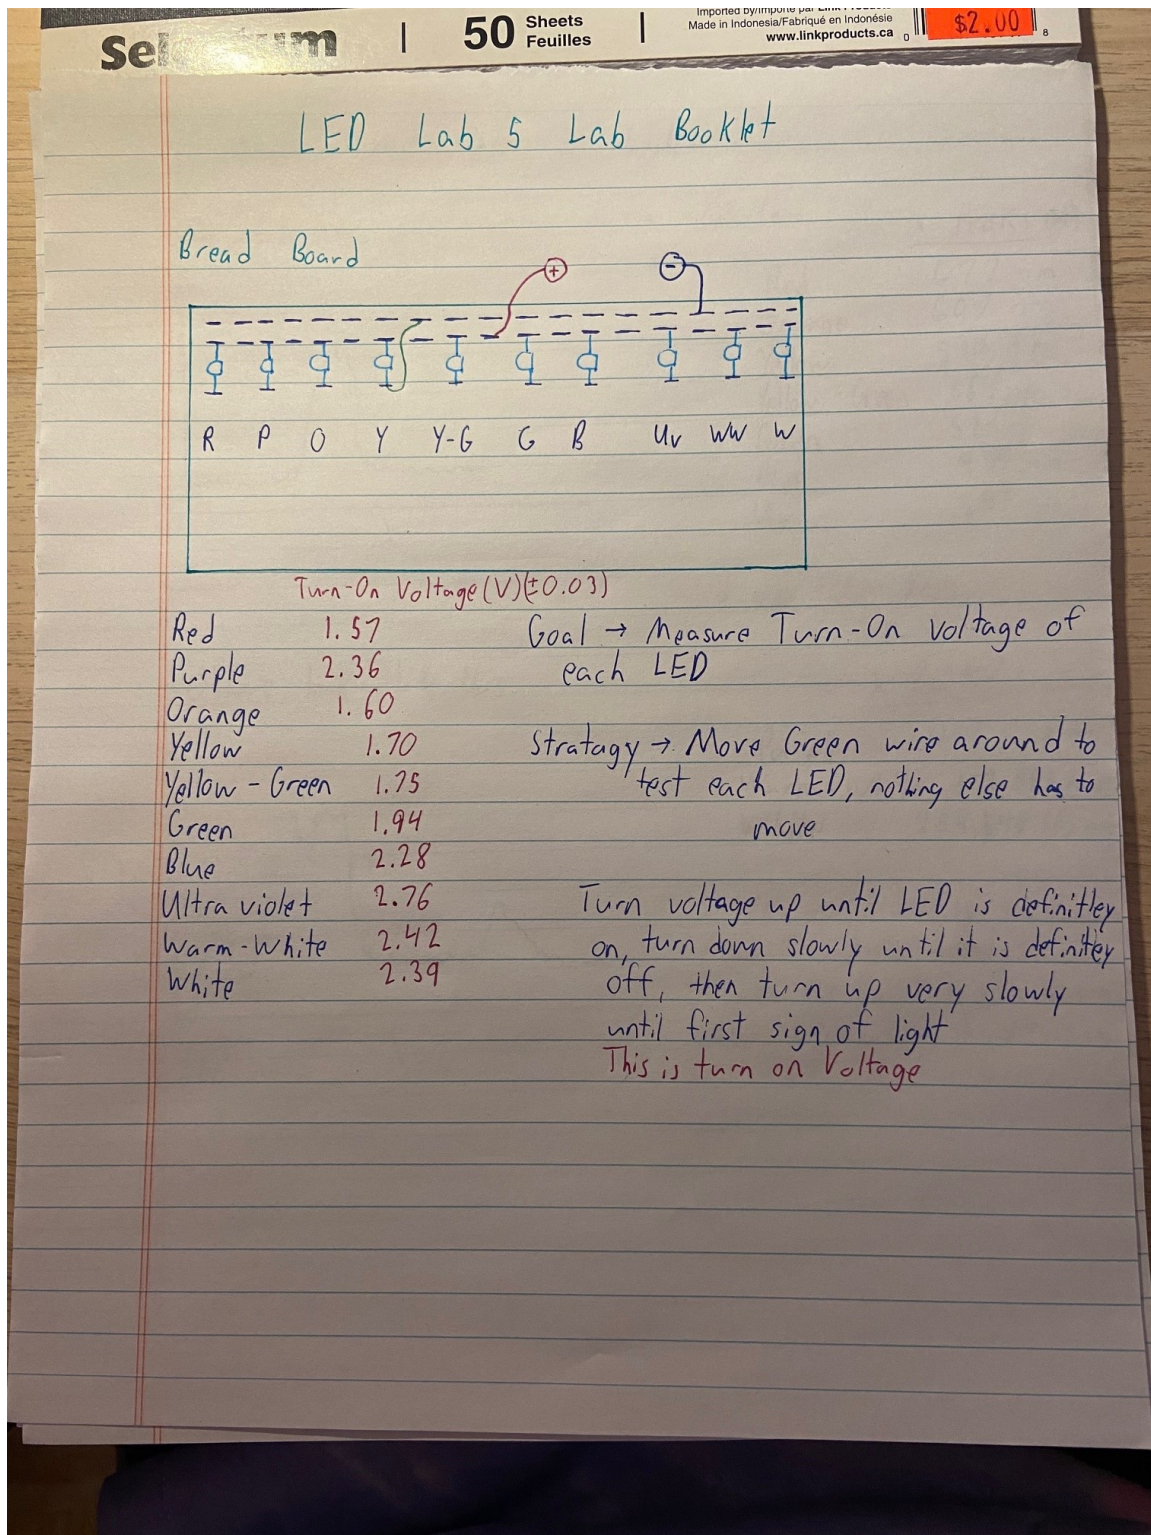 50 Sheets
Feuilles
Made in Indonesia/Fabriqué en Indonésie
www.linkproducts.ca
0
$2.00
8
LED Lab 5 Lab Booklet
Bread Board
+ -
R P O Y Y-G G B Uv WW W
Turn-On Voltage (V)(±0.03)
Red 1.57
Purple 2.36
Orange 1.60
Yellow 1.70
Yellow - Green 1.75
Green 1.94
Blue 2.28
Ultra violet 2.76
Warm-White 2.42
White 2.39
Goal → Measure Turn-On voltage of
each LED
Stratagy → Move Green wire around to
test each LED, nothing else has to
move
Turn voltage up until LED is definitley
on, turn down slowly until it is definitley
off, then turn up very slowly
until first sign of light
This is turn on Voltage